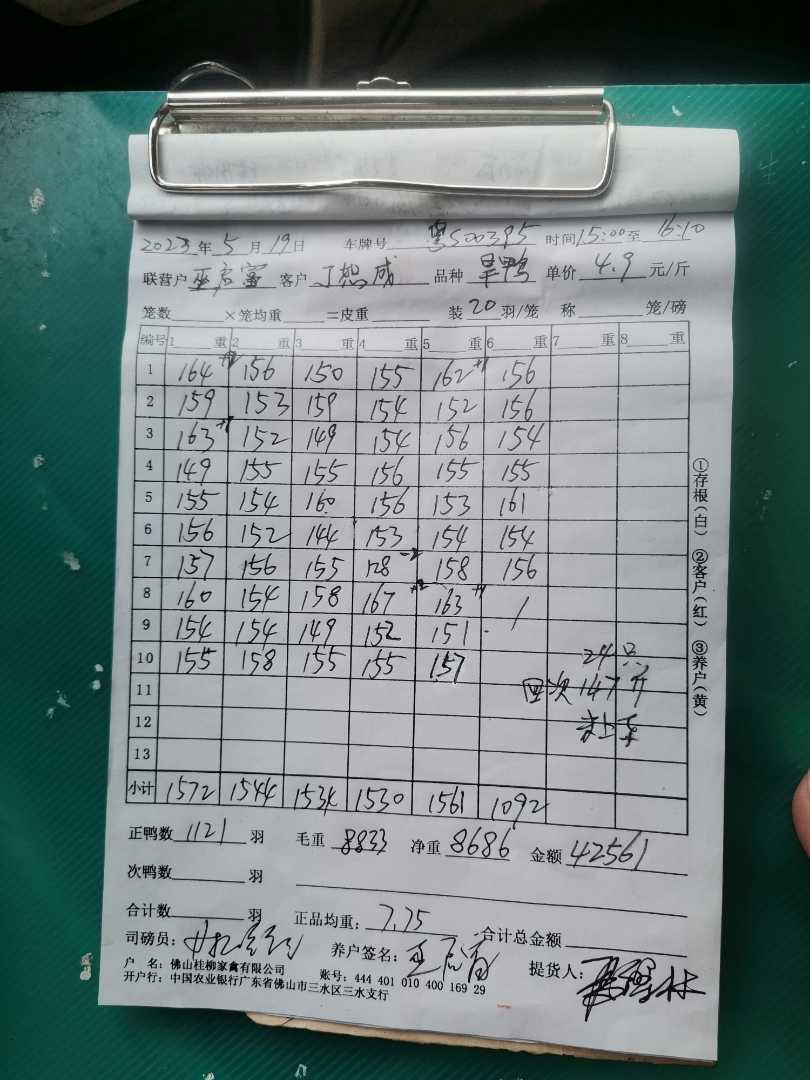 2023年5月19日 车牌号 粤S00395 时间15:00至16:10
联营户 巫启富 客户 丁想成 品种 旱鸭 单价 4.9 元/斤
笼数 ×笼均重 =皮重 装20羽/笼 称 笼/磅
编号 1 重 2 重 3 重 4 重 5 重 6 重 7 重 8 重
1 164+2 156 150 155 162+1 156
2 159 153 159 154 152 156
3 163+1 152 149 154 156 154
4 149 155 155 156 155 155
5 155 154 160 156 153 161
6 156 152 144 153 154 154
7 157 156 155 128-2 158 156
8 160 154 158 167+2 163+1 /
9 154 154 149 152 151
10 155 158 155 155 157
24只
11
147斤
12
13
小计 1572 1544 1534 1530 1561 1092
正鸭数 1121 羽 毛重 8833 净重 8686 金额 42561
次鸭数 羽
合计数 羽 正品均重: 7.75 合计总金额
司磅员: 养户签名: 提货人:
户 名: 佛山桂柳家禽有限公司 账号: 444 401 010 400 169 29
开户行: 中国农业银行广东省佛山市三水区三水支行
①存根(白) ②客户(红) ③养户(黄)